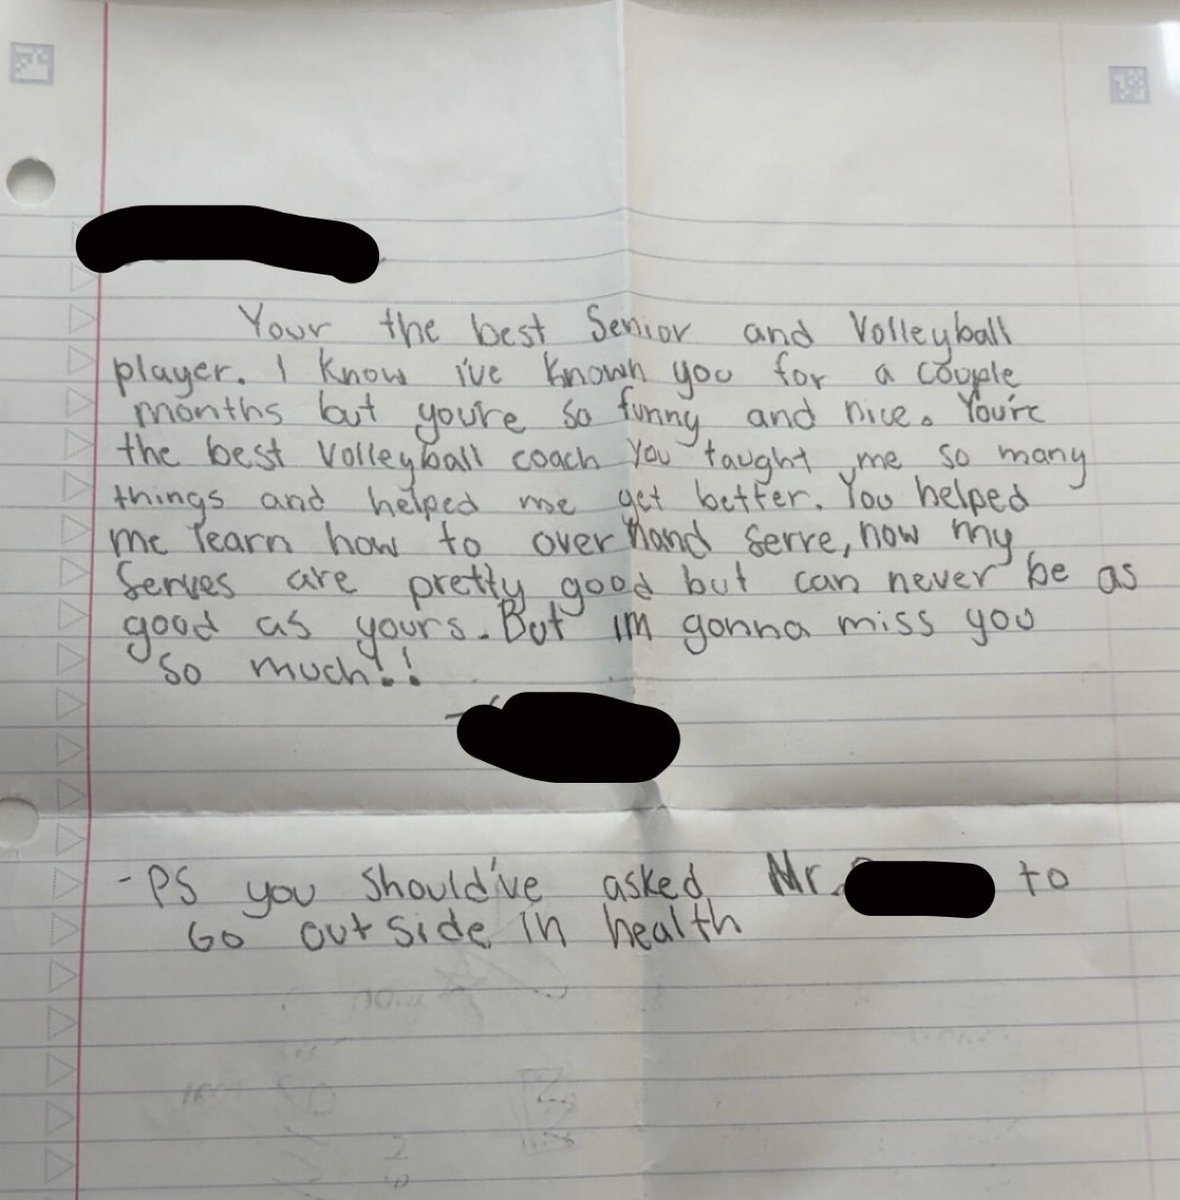 Your the best Senior and Volleyball
player. I know i've known you for a couple
months but you're so funny and nice. You're
the best Volleyball coach you taught me so many
things and helped me get better. You helped
me learn how to over hand serve, now my
serves are pretty good but can never be as
good as yours. But im gonna miss you
so much!!
-PS you should've asked Mr. to
Go outside in health